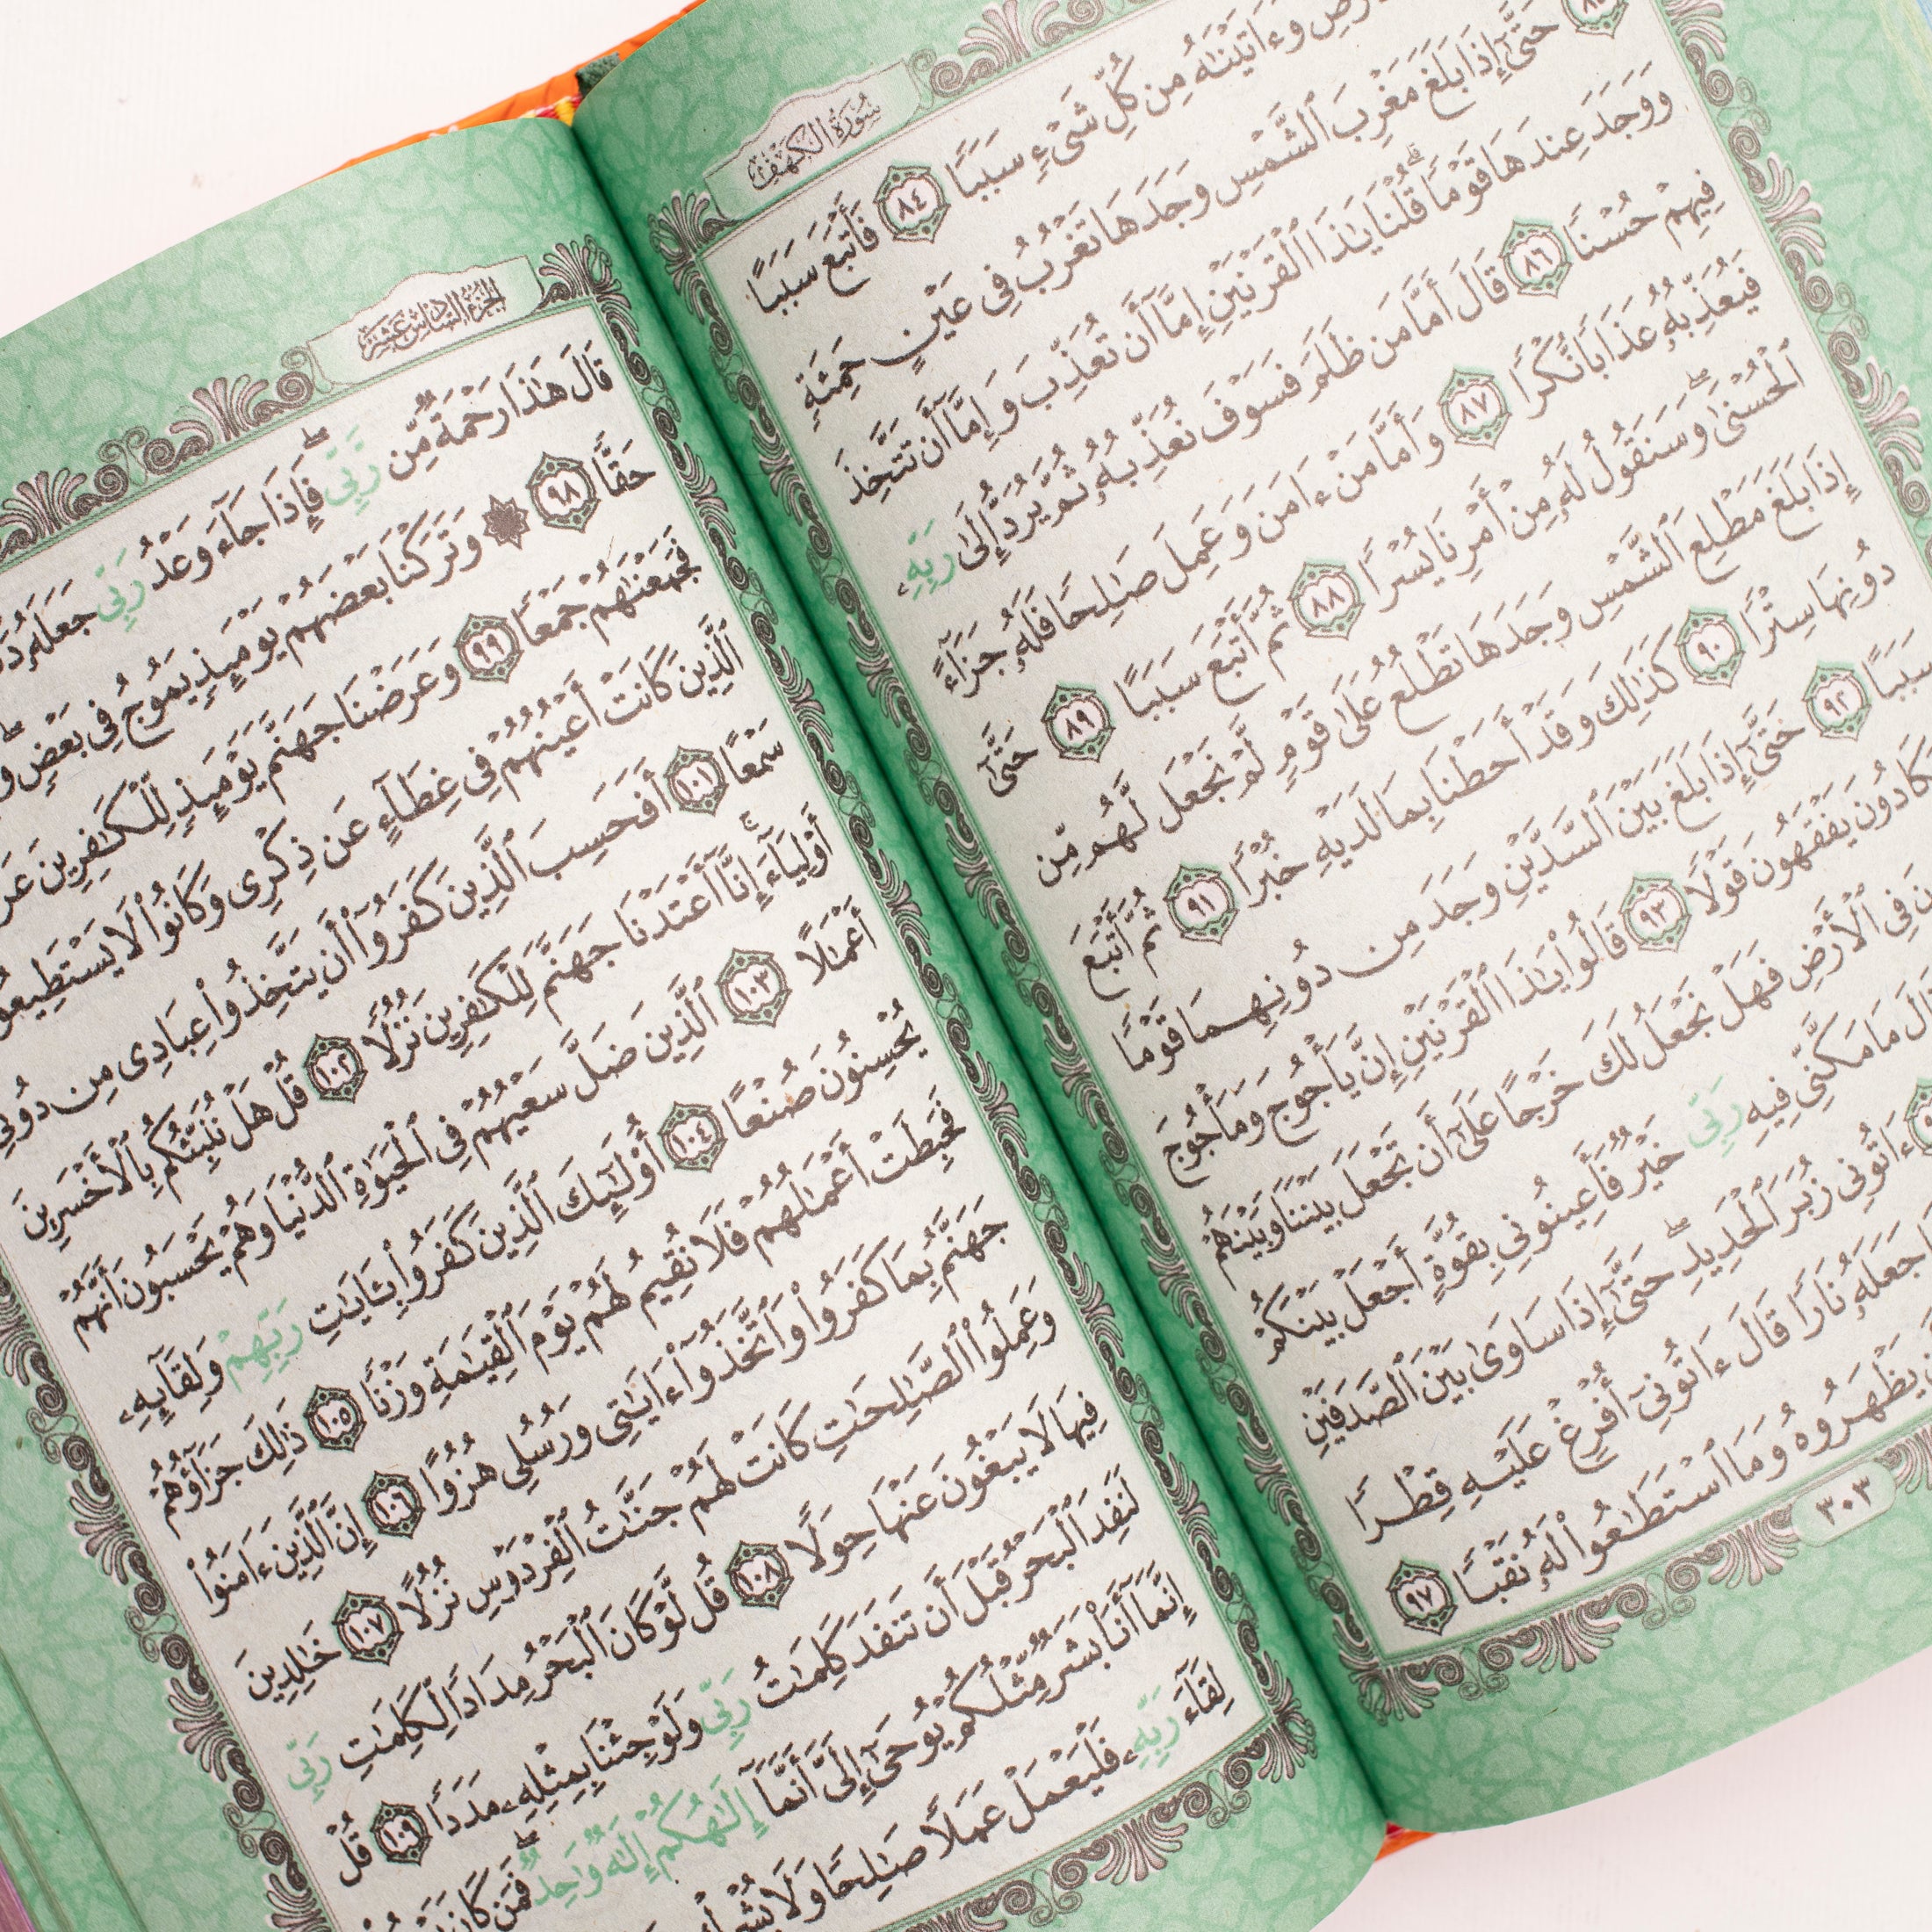 سُورَةُ الكَهْفِ
وَءَاتَيۡنَٰهُ مِن كُلِّ شَيۡءٖ سَبَبٗا ٨٤ فَأَتۡبَعَ سَبَبًا
حَتَّىٰٓ إِذَا بَلَغَ مَغۡرِبَ ٱلشَّمۡسِ وَجَدَهَا تَغۡرُبُ فِي عَيۡنٍ حَمِئَةٖ
وَوَجَدَ عِندَهَا قَوۡمٗاۖ قُلۡنَا يَٰذَا ٱلۡقَرۡنَيۡنِ إِمَّآ أَن تُعَذِّبَ وَإِمَّآ أَن تَتَّخِذَ
فِيهِمۡ حُسۡنٗا ٨٦ قَالَ أَمَّا مَن ظَلَمَ فَسَوۡفَ نُعَذِّبُهُۥ ثُمَّ يُرَدُّ إِلَىٰ رَبِّهِۦ
فَيُعَذِّبُهُۥ عَذَابٗا نُّكۡرٗا ٨٧ وَأَمَّا مَنۡ ءَامَنَ وَعَمِلَ صَٰلِحٗا فَلَهُۥ جَزَآءً
ٱلۡحُسۡنَىٰۖ وَسَنَقُولُ لَهُۥ مِنۡ أَمۡرِنَا يُسۡرٗا ٨٨ ثُمَّ أَتۡبَعَ سَبَبًا ٨٩ حَتَّىٰٓ
إِذَا بَلَغَ مَطۡلِعَ ٱلشَّمۡسِ وَجَدَهَا تَطۡلُعُ عَلَىٰ قَوۡمٖ لَّمۡ نَجۡعَل لَّهُم مِّن
دُونِهَا سِتۡرٗا ٩٠ كَذَٰلِكَۖ وَقَدۡ أَحَطۡنَا بِمَا لَدَيۡهِ خُبۡرٗا ٩١ ثُمَّ أَتۡبَعَ
سَبَبًا ٩٢ حَتَّىٰٓ إِذَا بَلَغَ بَيۡنَ ٱلسَّدَّيۡنِ وَجَدَ مِن دُونِهِمَا قَوۡمٗا
يَكَادُونَ يَفۡقَهُونَ قَوۡلٗا ٩٣ قَالُواْ يَٰذَا ٱلۡقَرۡنَيۡنِ إِنَّ يَأۡجُوجَ وَمَأۡجُوجَ
فِي ٱلۡأَرۡضِ فَهَلۡ نَجۡعَلُ لَكَ خَرۡجًا عَلَىٰٓ أَن تَجۡعَلَ بَيۡنَنَا وَبَيۡنَهُمۡ
قَالَ مَا مَكَّنِّي فِيهِ رَبِّي خَيۡرٞ فَأَعِينُونِي بِقُوَّةٍ أَجۡعَلۡ بَيۡنَكُمۡ
ءَاتُونِي زُبَرَ ٱلۡحَدِيدِۖ حَتَّىٰٓ إِذَا سَاوَىٰ بَيۡنَ ٱلصَّدَفَيۡنِ
جَعَلَهُۥ نَارٗا قَالَ ءَاتُونِيٓ أُفۡرِغۡ عَلَيۡهِ قِطۡرٗا
يَظۡهَرُوهُ وَمَا ٱسۡتَطَٰعُواْ لَهُۥ نَقۡبٗا ٩٧
٣٠٣
الجُزْءُ السَّادِسَ عَشَرَ
قَالَ هَٰذَا رَحۡمَةٞ مِّن رَّبِّيۖ فَإِذَا جَآءَ وَعۡدُ رَبِّي جَعَلَهُۥ
حَقّٗا ٩٨ ۞ وَتَرَكۡنَا بَعۡضَهُمۡ يَوۡمَئِذٖ يَمُوجُ فِي بَعۡضٖۖ
فَجَمَعۡنَٰهُمۡ جَمۡعٗا ٩٩ وَعَرَضۡنَا جَهَنَّمَ يَوۡمَئِذٖ لِّلۡكَٰفِرِينَ
ٱلَّذِينَ كَانَتۡ أَعۡيُنُهُمۡ فِي غِطَآءٍ عَن ذِكۡرِي وَكَانُواْ لَا يَسۡتَطِيعُونَ
سَمۡعًا ١٠١ أَفَحَسِبَ ٱلَّذِينَ كَفَرُوٓاْ أَن يَتَّخِذُواْ عِبَادِي مِن دُونِيٓ
أَوۡلِيَآءَۚ إِنَّآ أَعۡتَدۡنَا جَهَنَّمَ لِلۡكَٰفِرِينَ نُزُلٗا ١٠٢ قُلۡ هَلۡ نُنَبِّئُكُم بِٱلۡأَخۡسَرِينَ
أَعۡمَٰلًا ١٠٣ ٱلَّذِينَ ضَلَّ سَعۡيُهُمۡ فِي ٱلۡحَيَوٰةِ ٱلدُّنۡيَا وَهُمۡ يَحۡسَبُونَ أَنَّهُمۡ
يُحۡسِنُونَ صُنۡعًا ١٠٤ أُوْلَٰٓئِكَ ٱلَّذِينَ كَفَرُواْ بِـَٔايَٰتِ رَبِّهِمۡ وَلِقَآئِهِۦ
فَحَبِطَتۡ أَعۡمَٰلُهُمۡ فَلَا نُقِيمُ لَهُمۡ يَوۡمَ ٱلۡقِيَٰمَةِ وَزۡنٗا ١٠٥ ذَٰلِكَ جَزَآؤُهُمۡ
جَهَنَّمُ بِمَا كَفَرُواْ وَٱتَّخَذُوٓاْ ءَايَٰتِي وَرُسُلِي هُزُوًا ١٠٦ إِنَّ ٱلَّذِينَ ءَامَنُواْ
وَعَمِلُواْ ٱلصَّٰلِحَٰتِ كَانَتۡ لَهُمۡ جَنَّٰتُ ٱلۡفِرۡدَوۡسِ نُزُلًا ١٠٧ خَٰلِدِينَ
فِيهَا لَا يَبۡغُونَ عَنۡهَا حِوَلٗا ١٠٨ قُل لَّوۡ كَانَ ٱلۡبَحۡرُ مِدَادٗا لِّكَلِمَٰتِ رَبِّي
لَنَفِدَ ٱلۡبَحۡرُ قَبۡلَ أَن تَنفَدَ كَلِمَٰتُ رَبِّي وَلَوۡ جِئۡنَا بِمِثۡلِهِۦ مَدَدٗا ١٠٩ قُلۡ
إِنَّمَآ أَنَا۠ بَشَرٞ مِّثۡلُكُمۡ يُوحَىٰٓ إِلَيَّ أَنَّمَآ إِلَٰهُكُمۡ إِلَٰهٞ وَٰحِدٞۖ فَمَن كَانَ
لِقَآءَ رَبِّهِۦ فَلۡيَعۡمَلۡ عَمَلٗا صَٰلِحٗا وَلَا يُشۡرِكۡ